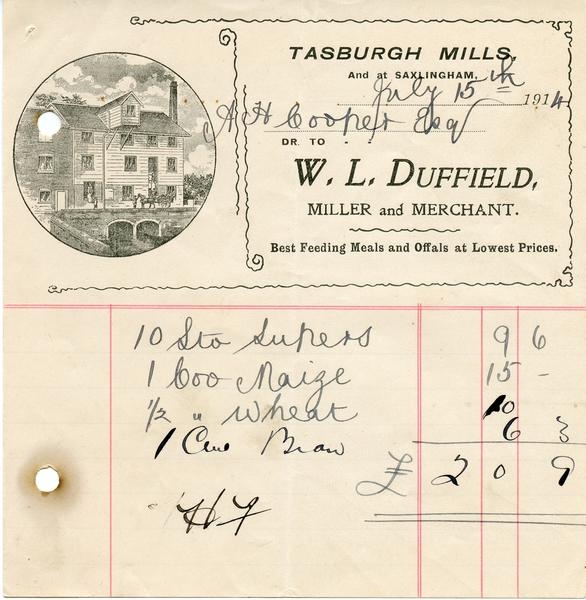 TASBURGH MILLS,
And at SAXLINGHAM,
July 15th 1914
A H Cooper Esq
DR. TO
W. L. DUFFIELD,
MILLER and MERCHANT.
Best Feeding Meals and Offals at Lowest Prices.
10 Sto Supers 9 6
1 Coo Maize 15 -
1/2 " Wheat 10
1 Bran 6 3
£ 2 0 9